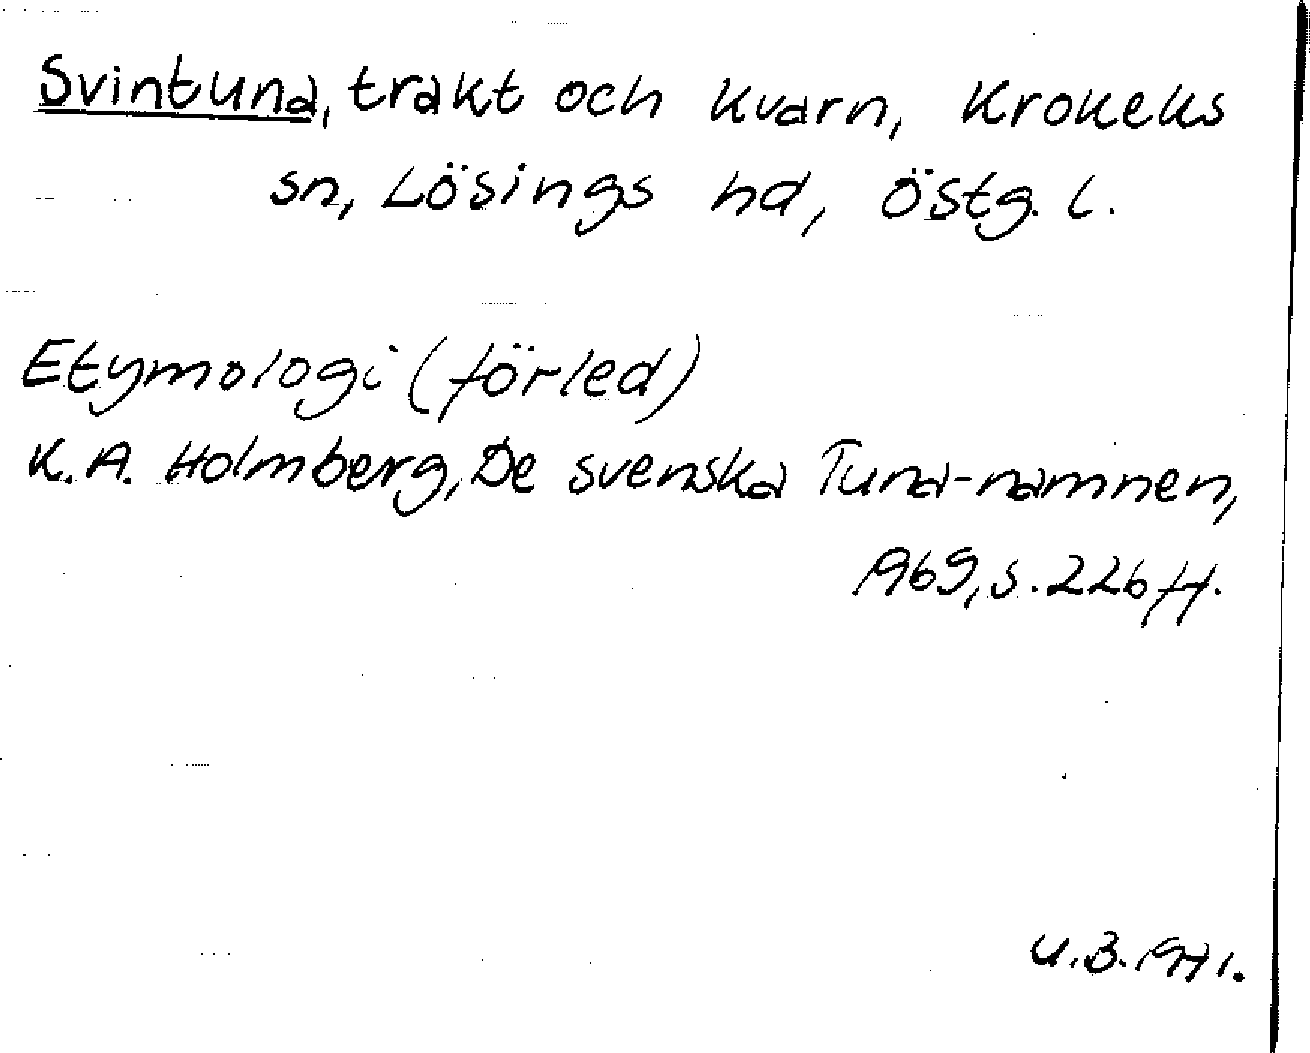 Svintuna, trakt och kvarn, Krokeks
sn, Lösings hd, Östg. l.
Etymologi (förled)
K.A. Holmberg, De svenska Tuna-namnen,
1969, s. 226 ff.
U.B. 1971.